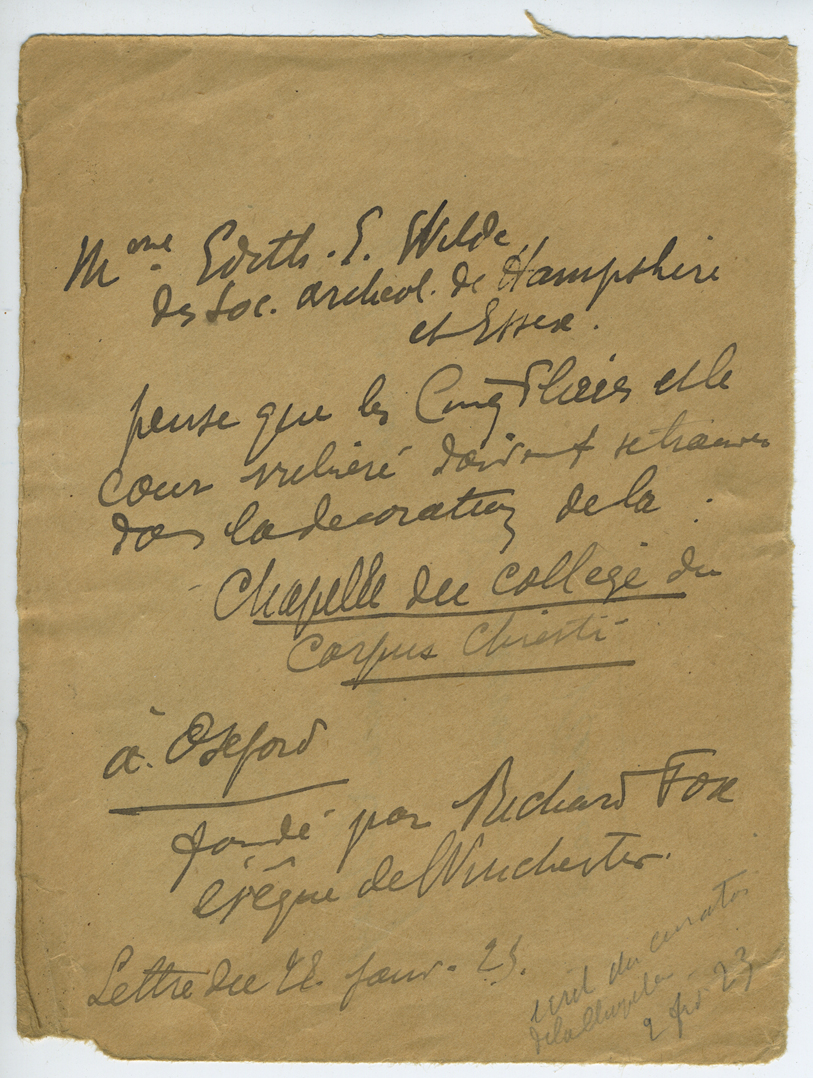 Mme Edith. E. Wilde
des soc. archeol. de Hampshire
et Essex.
pense que les Cinq Plaies et le
cœur vulnéré doivent se trouver
dans la decoration de la
Chapelle du college du
Corpus Christi
à Oxford
fondé par Richard Fox
évêque de Winchester.
Lettre du 22 janv. 23.
écrit du
de la
2 fev 23